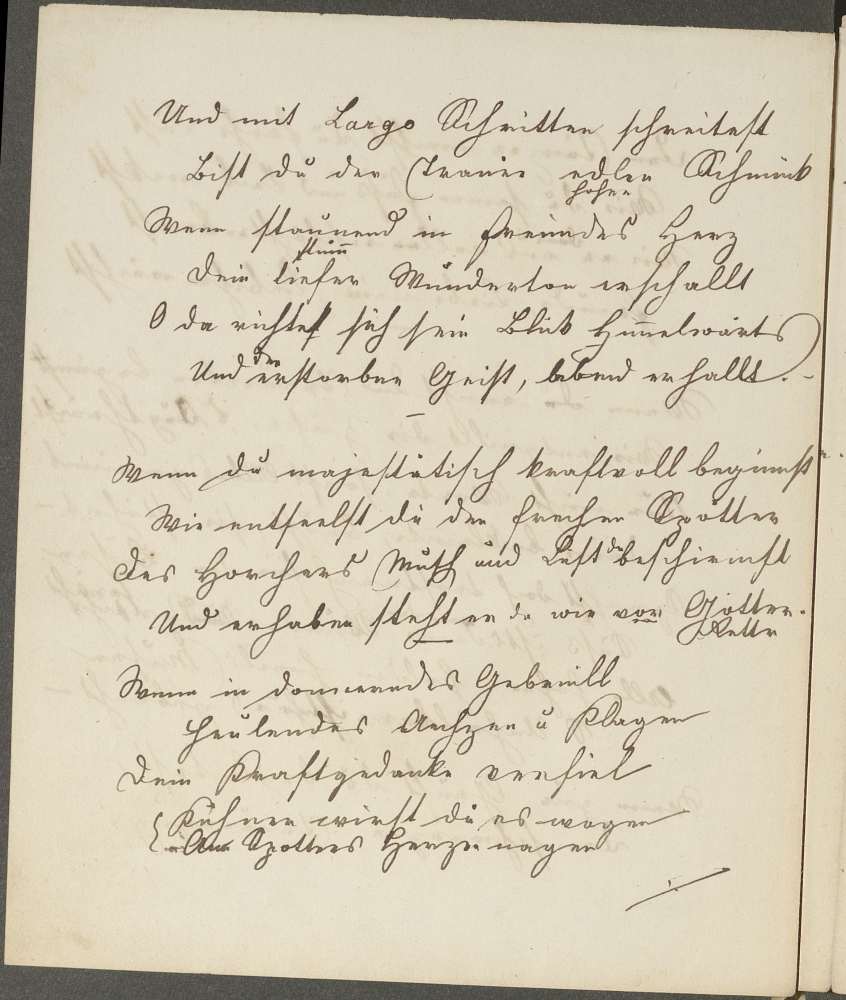 Und mit Largo Schritten schreitest
Bist du der Trauer edler Schmuck
hoher
Wenn staunend in Freundes Herz
stum̅
Dein tiefer Wunderton erschallt
O da richtet sich sein Blick Him̅elwärts
Und der erstorbne Geist, lebend erhallt. –
–
Wenn du majestätisch kraftvoll beginnst
Wie entseelst du den frechen Spötter
Des Horchers Muth und Lust du beschirmst
Und erhaben steht er da wie vor Götter.
Retter
Wenn in donnerndes Gebrüll
Heulendes Aechzen u Klagen
Dein Kraftgedanke verfiel
Kühner wirst du es wagen
Am Spötters Herzen nagen